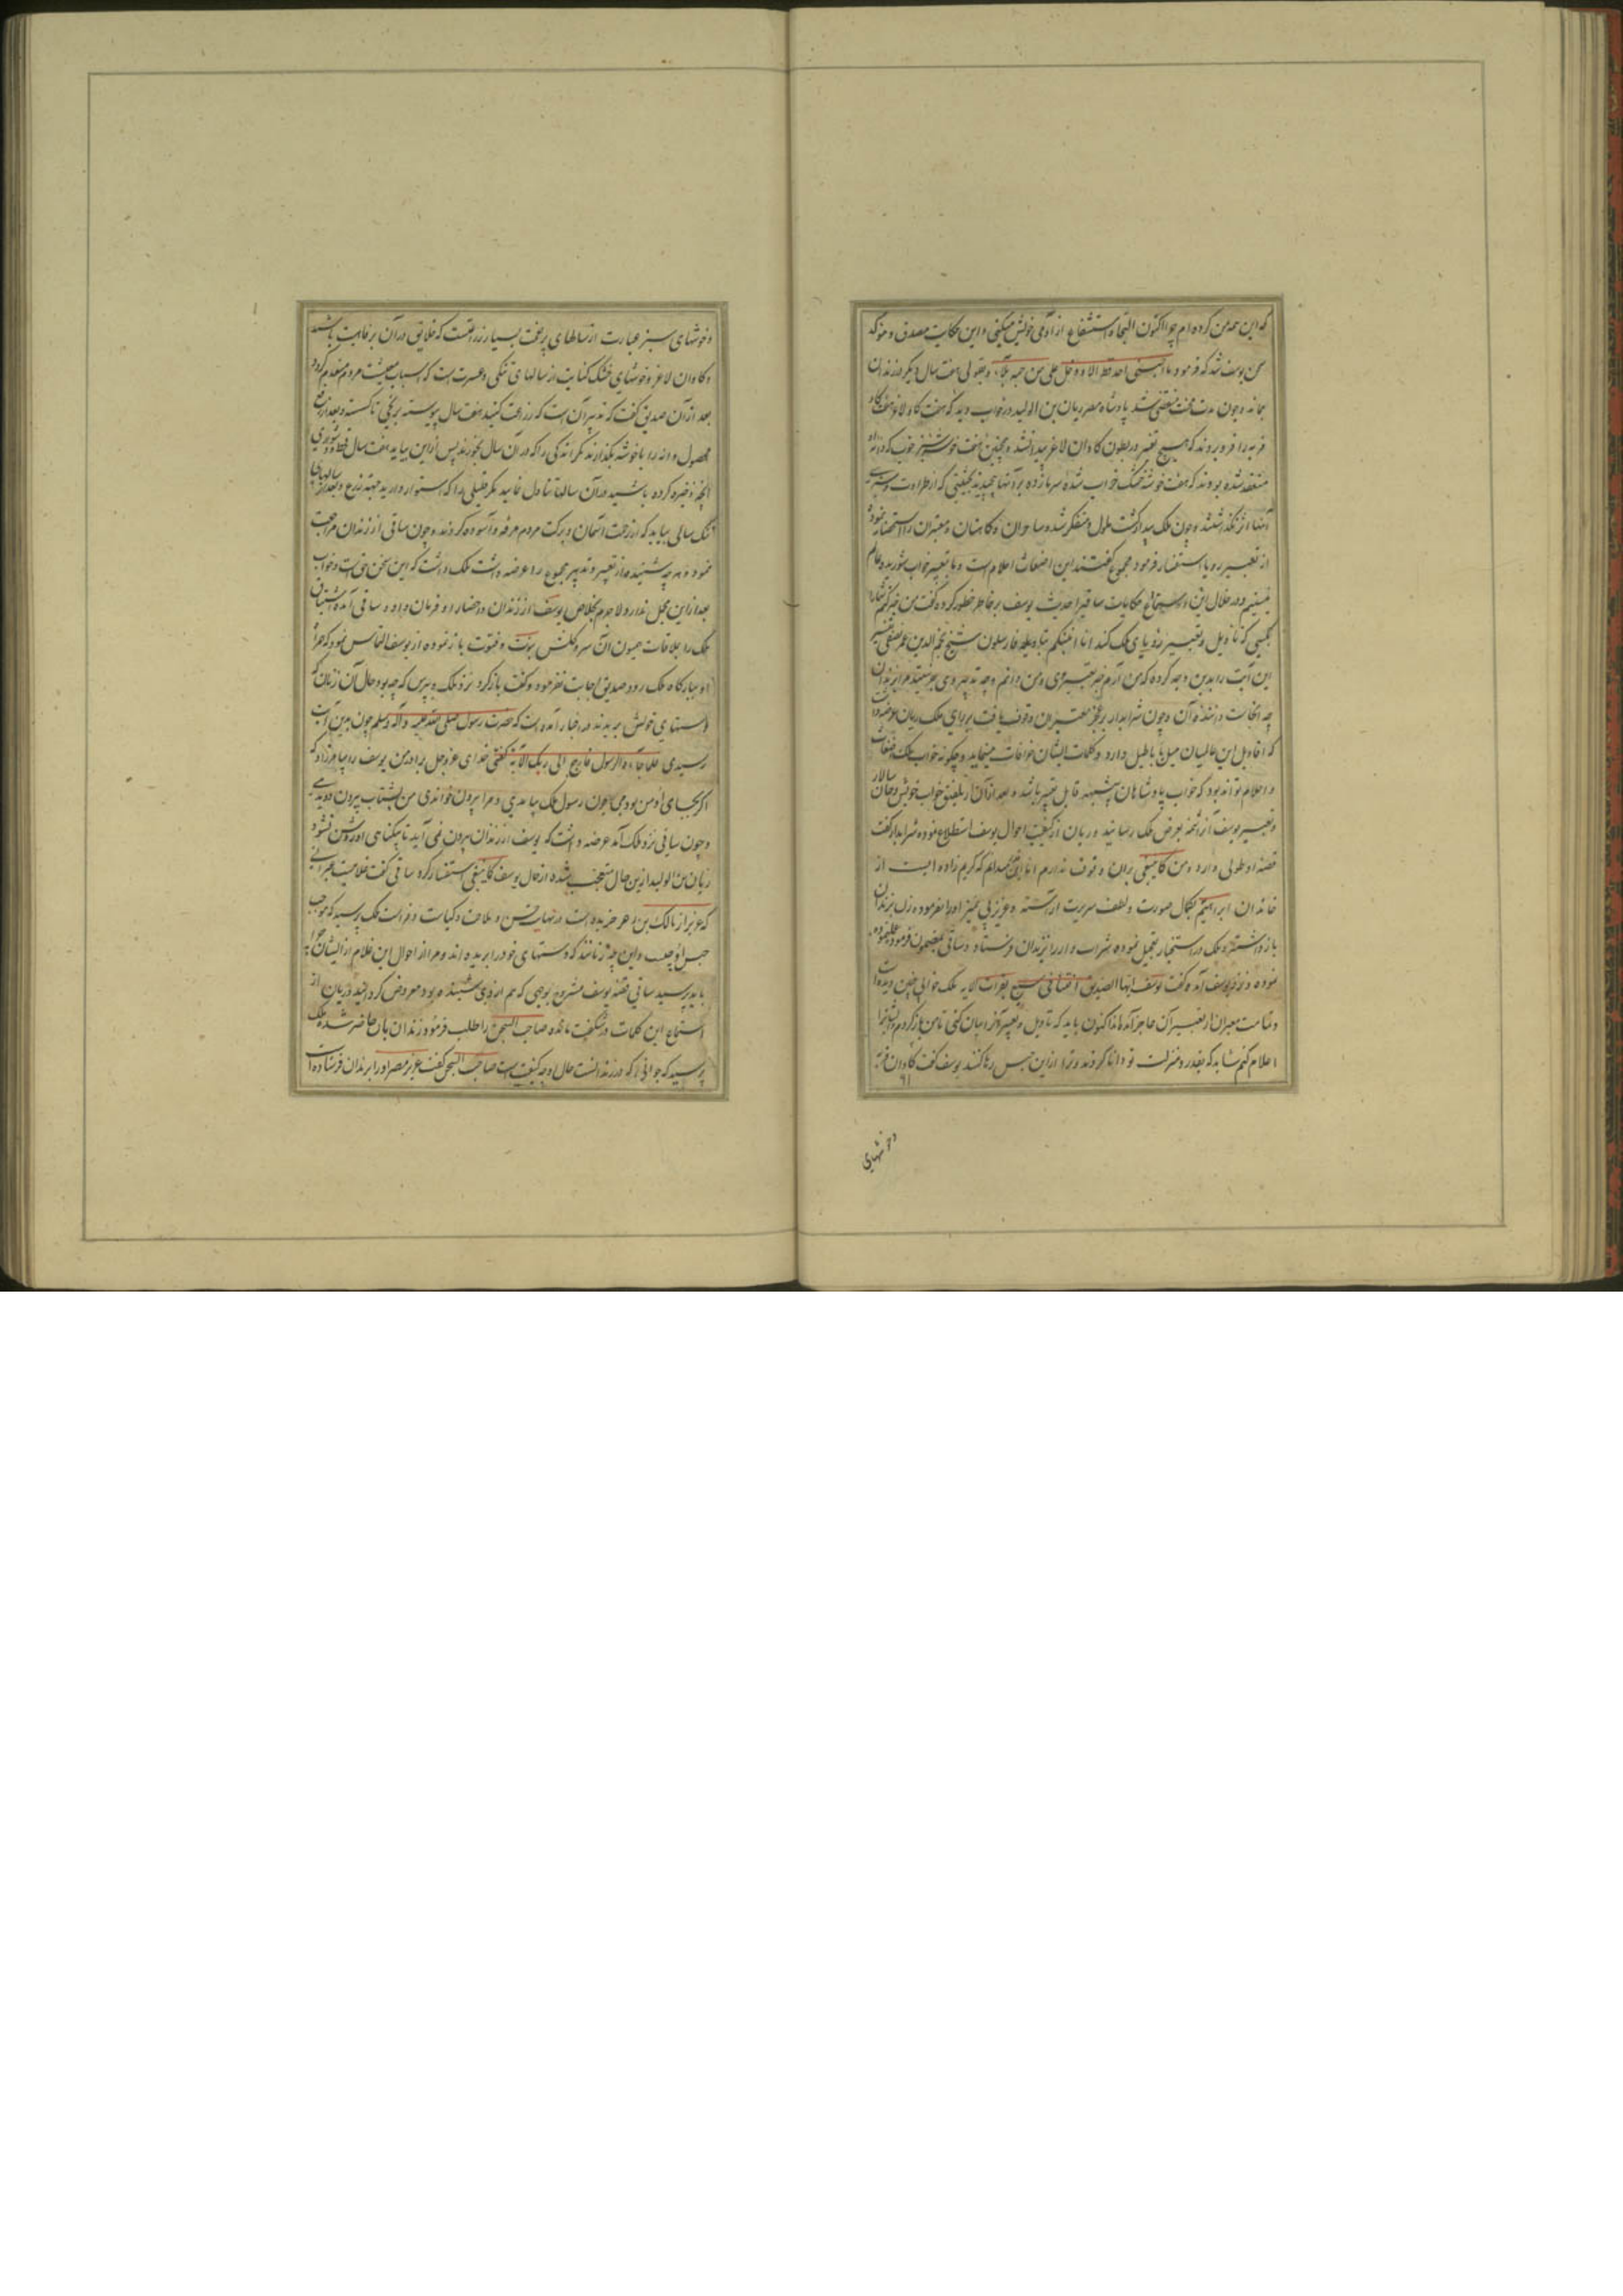 که این همه من کرده ام چرا اکنون التجا و استشفاع از آدمی خویش میکنی و این حکایت مصدق و موکد
سخن یوسف شد که فرمود ما احبنی احد قط الا دخل علی من حبه بلاء و بقولی هفت سال دیگر در زندان
بماند و چون مدت محنت منقضی شد پادشاه مصر ریان بن الولید در خواب دید که هفت گاو لاغر هفت گاو
فربه را فرو بردند که هیچ تغییر در بطون گاوان لاغر پیدا نشد و همچنین هفت خوشه سبز خوب که دانه
منعقد شده بودند که هفت خوشه خشک خراب شده سر باز زده بر آنها پیچیدند بحیثیتی که از طراوت و سبزی
آنها اثر نگذاشتند و چون ملک بیدار گشت ملول و متفکر شده ساحران و کاهنان و معبران را استحضار نمود
از تعبیر رویا استفسار فرمود مجموع گفتند این اضغاث احلام است و ما بتعبیر خواب شوریده عالم
نیستیم و در خلال این حکایات ساقی را حدیث یوسف بر خاطر خطور کرده گفت من خبر کنم شما را
بکسی که تاویل و تعبیر رؤیای ملک کند انا انبئکم بتاویله فارسلون شیخ نجم الدین عمر نسفی تفسیر
این آیت را بدین وجه کرده که من آرم خبر تعبیر وی و من دانم وجه تدبیر وی بفرستید مرا بزندان
چه آنجاست داننده آن و چون شرابدار بر عجز معبران وقوف یافت بر رای ملک ریان عرضه داشت
که اقاویل این عالمیان میل با باطیل دارد و کلمات ایشان خرافات مینماید و چگونه خواب ملک اضغاث
و احلام تواند بود که خواب پادشاهان بی شبهه قابل تعبیر باشد و بعد از آن از تلفیق خواب خویش و خوان سالار
و تعبیر یوسف آن را شمه بعرض ملک رسانید و ریان از کیفیت احوال یوسف استطلاع نموده شرابدار گفت
قصه او طولی دارد و من کما ینبغی بران وقوف ندارم اما این میدانم که کریم زاده ایست از
خاندان ابراهیم بکمال صورت و لطف سیرت آراسته و عزیز بی تمییز او را مقرموده زلت بزندان
باز داشته و ملک در استخبار تعجیل نموده شراب دار را بزندان فرستاد و ساقی بمضمون فرموده عمل نموده
نموده و نزد یوسف آمده گفت یوسف ایها الصدیق افتنا فی سبع بقرات الایه ملک خوابی چنین دیده است
و تمامت معبران از تعبیر آن عاجز آمده اند اکنون باید که تاویل و تعبیر آنرا بیان کنی تا من باز گردم و ایشانرا
اعلام کنم شاید که بقدر و منزلت تو دانا گردند و ترا از این حبس رها کنند یوسف گفت گاوان فربه
و خوشهای
و خوشهای سبز عبارت از سالهای پر نعمت بسیار زراعتست که خلایق در آن برفاهیت باشند
و گاوان لاغر و خوشهای خشک کنایت از سالهای تنگی و عسرت است که اسباب معیشت مردم منعدم گردد
بعد از آن صدیق گفت که تدبیر آن است که زراعت کنید هفت سال پیوسته بر نهج تا گسسته و بعد از رفع
محصول دانه را با خوشه بگذارند مگر اندکی را که در آن سال بخورند پس از این بیاید هفت سال قحط و دشواری
آنچه ذخیره کرده باشید در آن سالها تناول نمایید مگر قلیلی را که استوار دارید جهة زرع و بعد از سالهای
تنگ سالی بیاید که از رحمت آسمان و برکت مردم مرفه و آسوده گردند و چون ساقی از زندان مراجعت
نمود و هر چه شنیده از تعبیر و تدبیر مجموع را عرضه داشت ملک دانست که این سخن حق است و خواب
بعد ازین محل ندارد لا جرم بخلاص یوسف از زندان و احضار او فرمان داد و ساقی آمده اشتیاق
ملک را بملاقات همیون آن سرو گلشن نبوت و فتوت باز نموده از یوسف التماس نمود که همراه
او ببارگاه ملک رود صدیق اجابت نفرمود و گفت بازگرد نزد ملک و بپرس که چه بود حال آن زنان که
دستهای خویش ببریدند در اخبار آمده است که حضرت رسول صلی الله علیه و آله و سلم چون بدین آیت
رسیدی فلما جاءه الرسول قال ارجع الی ربک الآیة گفتی خدای عز و جل برادر من یوسف را بیامرزاد که
اگر بجای او من بودمی چون رسول ملک بیامدی و مرا بیرون خواندی من بشتاب بیرون دویدمی
و چون ساقی نزد ملک آمد عرضه داشت که یوسف از زندان بیرون نمی آید تا بیگناهی او روشن نشود
ریان بن الولید ازین حال متعجب شده از حال یوسف کما ینبغی استفسار کرد ساقی گفت غلامیست عبرانی
که عزیز از مالک بن ذعر خریده است در نهایت حسن و ملاحت و کیاست و فراست ملک پرسید که موجب
حبس او چیست و این چه زنانند که دستهای خود را بریده اند و مرا از احوال این غلام از ایشان چرا
باید پرسید ساقی قصه یوسف مشروح بوجهی که هم از وی شنیده بود معروض گردانید و ریان از
استماع این کلمات در شگفت مانده صاحب السجن را طلب فرمود زندان بان حاضر شده ملک
پرسید که جوانی را که در زندانست حال او چه کیفیت است صاحب السجن گفت عزیز مصر او را بزندان فرستاده است